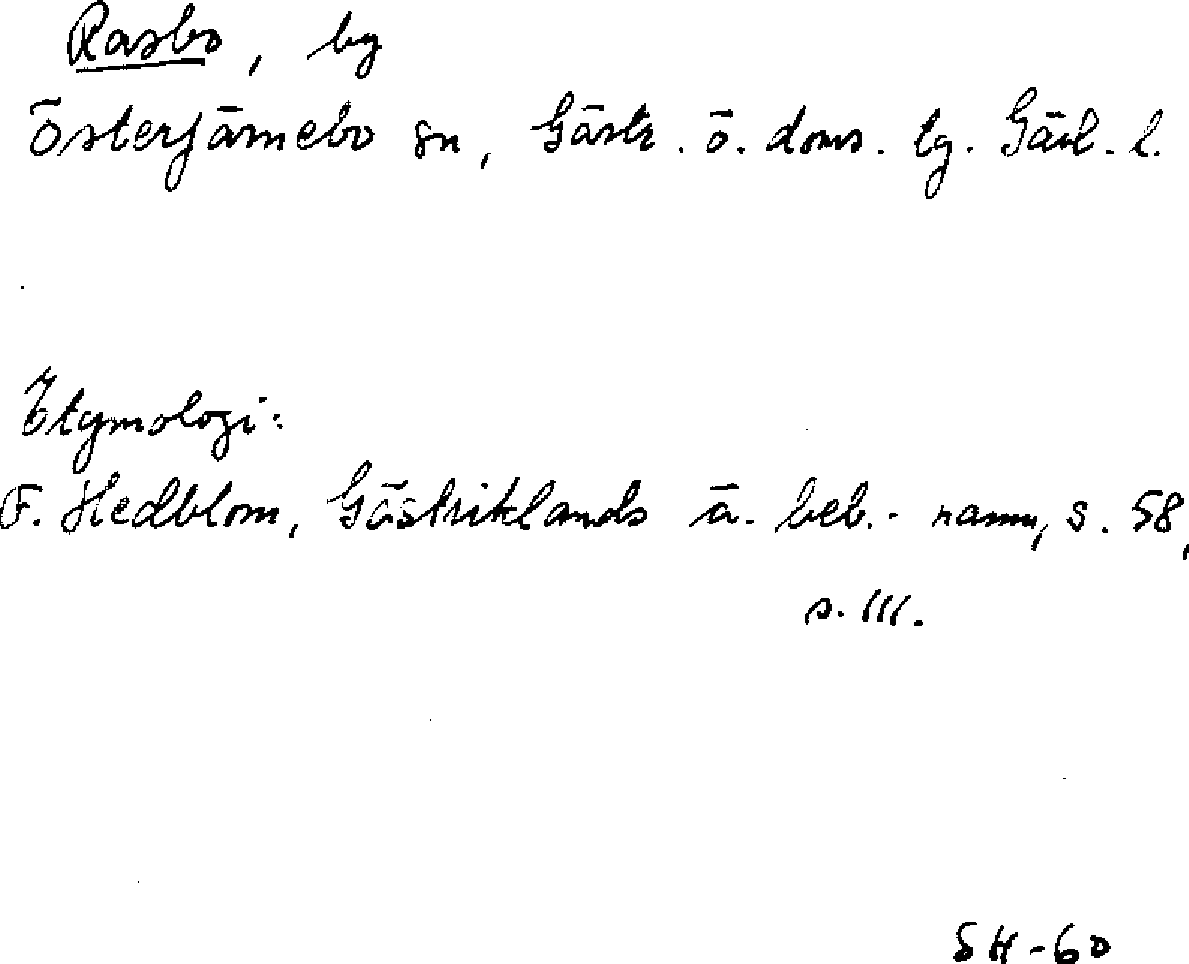 Rasbo, by
Österfärnebo sn, Gästr. ö. doms. tg. Gävl. l.
Etymologi:
F. Hedblom, Gästriklands ä. beb.-namn, s. 58,
s. 111.
SH-60